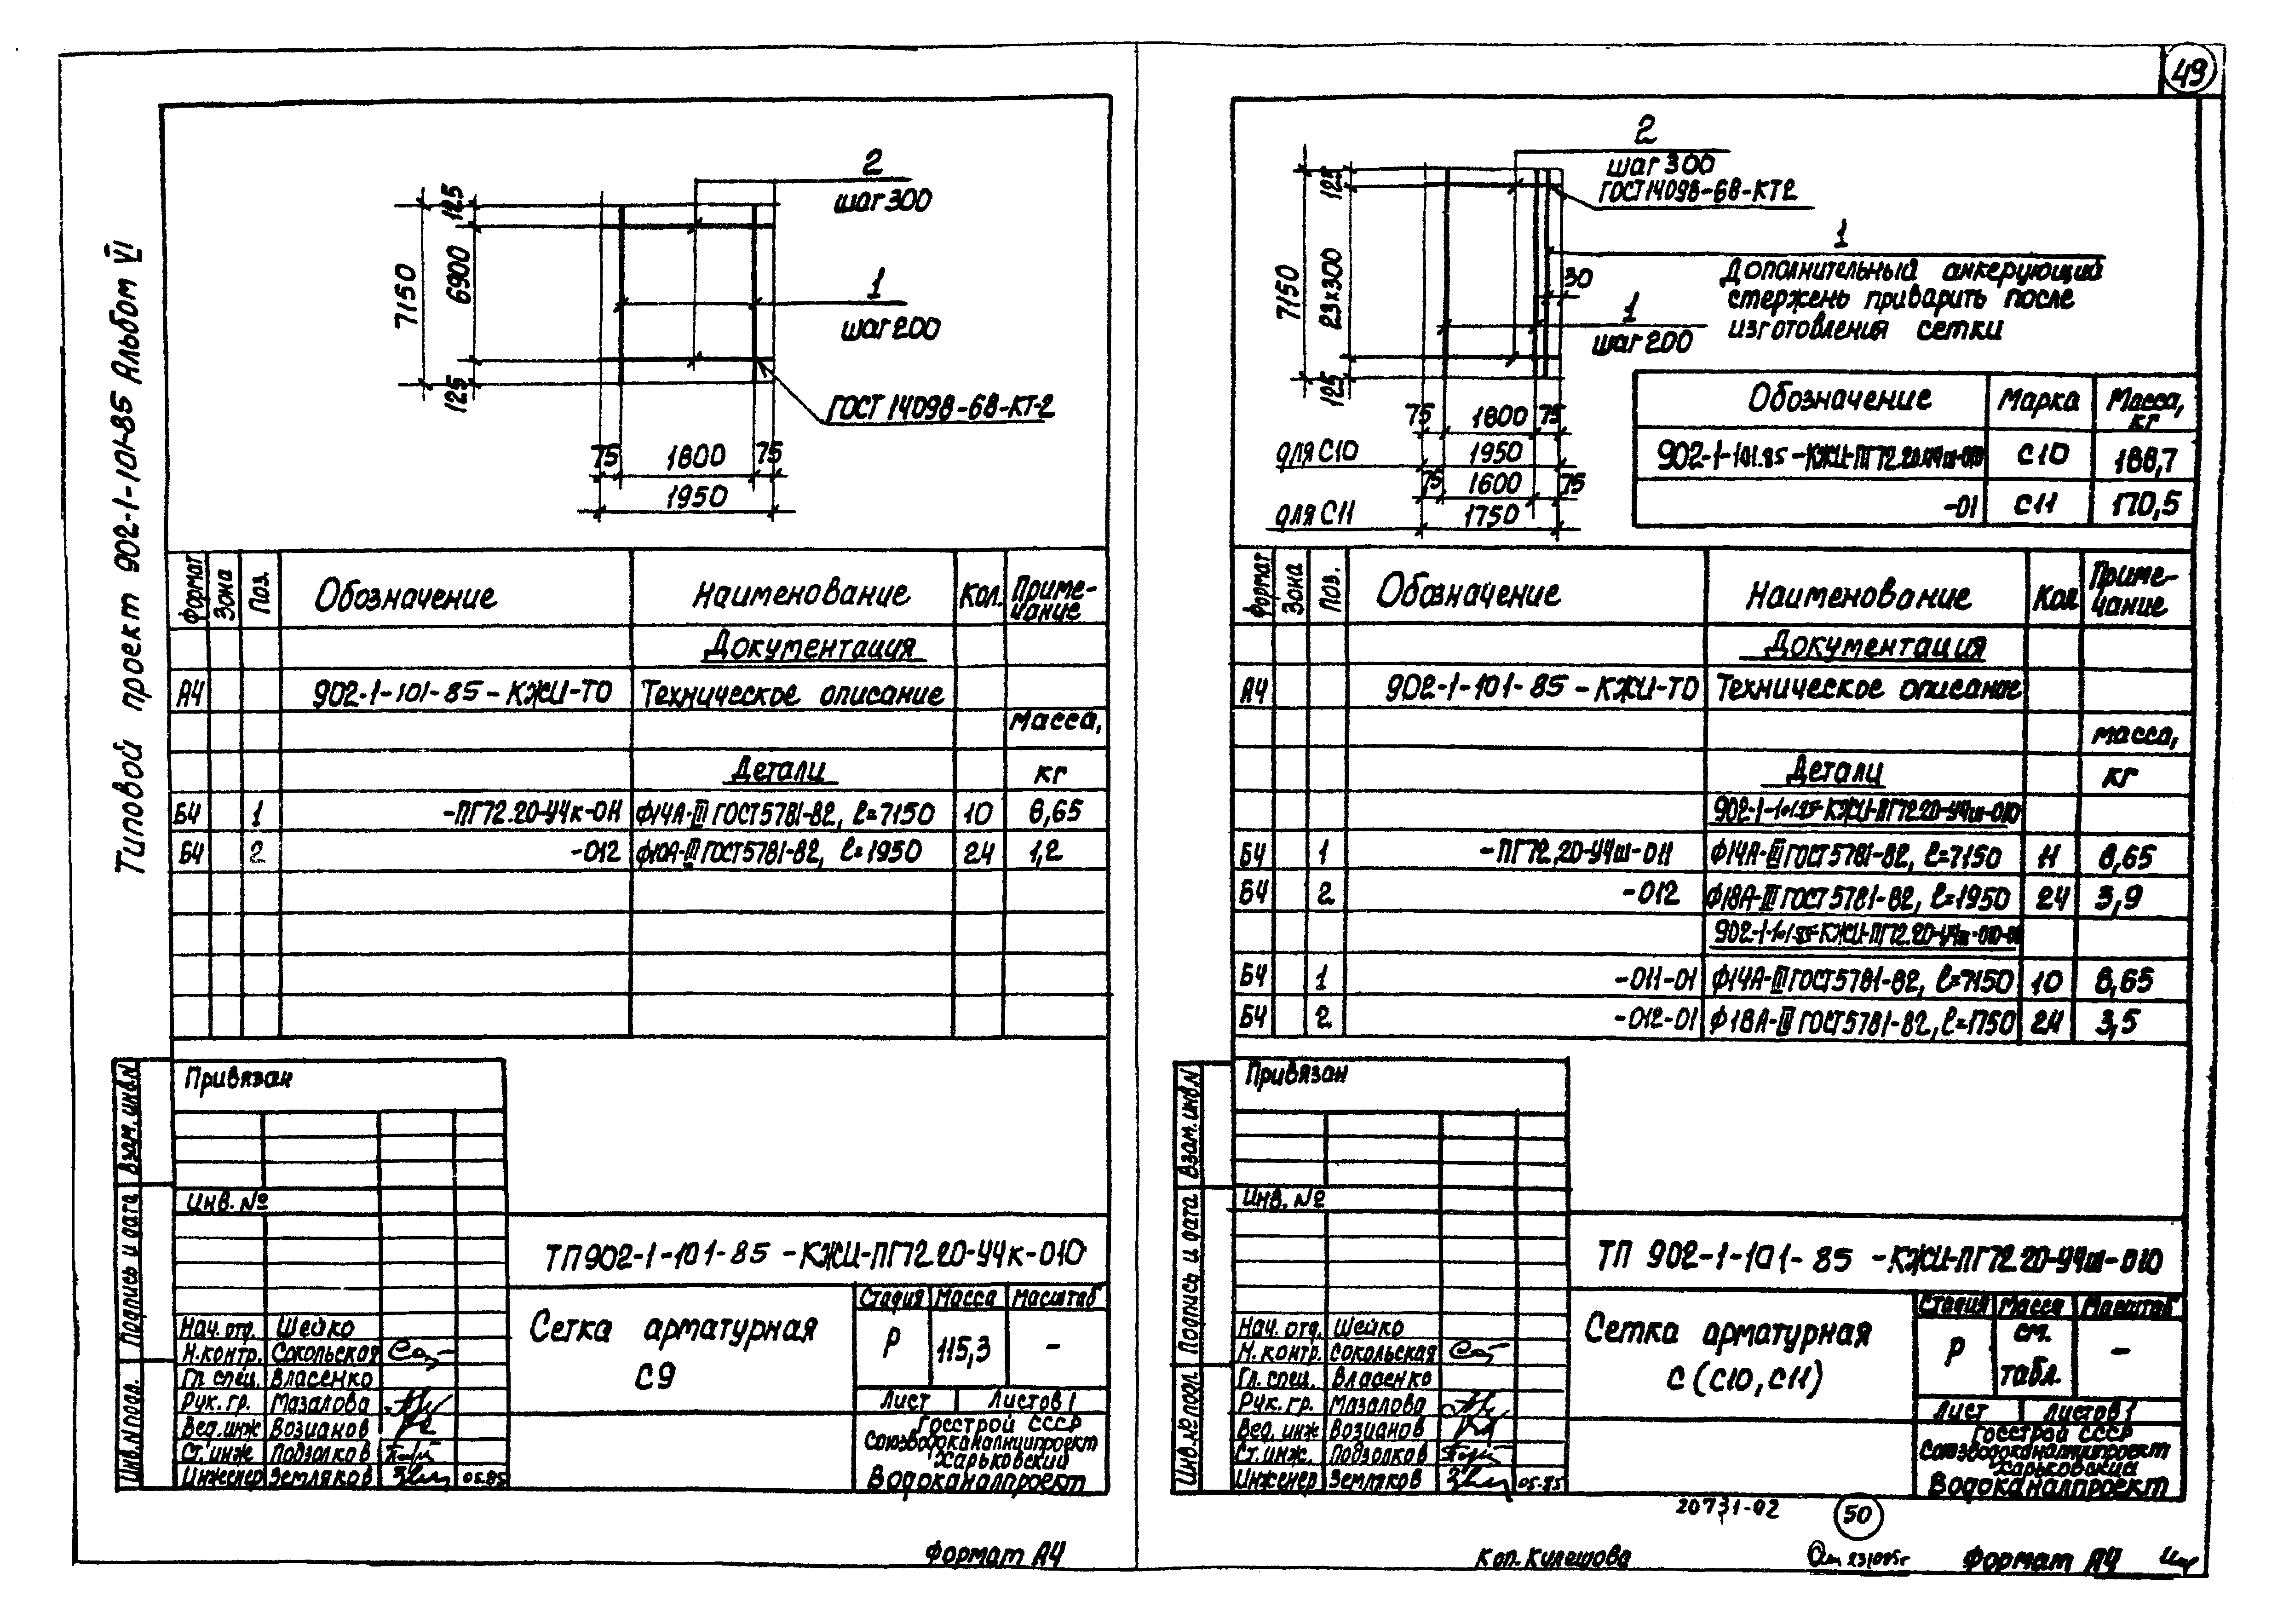 49
Типовой проект 902-1-101-85 Альбом VI
2
шаг 300
1
шаг 200
ГОСТ 14098-68-КТ-2
7150
125
6900
125
75
1800
75
1950
Формат
Зона
Поз.
Обозначение
Наименование
Кол.
Приме-
чание
Документация
А4 902-1-101-85-КЖИ-ТО Техническое описание
масса,
Детали кг
Б4 1 -ПГ72.20-У4к-011 Ф14А-III ГОСТ5781-82, ℓ=7150 10 8,65
Б4 2 -012 Ф10А-III ГОСТ5781-82, ℓ=1950 24 1,2
Привязан
Инв. №
Взам. инв. N
Подпись и дата
Инв. N подл.
ТП902-1-101-85-КЖИ-ПГ72.20-У4к-010
Нач. отд. Шейко
Н.контр. Сокольская
Гл. спец. Власенко
Рук. гр. Мазалова
Вед. инж Возианов
Ст. инж Подзолков
Инженер Земляков 05.85
Сетка арматурная
С9
Стадия Масса Масштаб
Р 115,3 -
Лист Листов 1
Госстрой СССР
Союзводоканалниипроект
Харьковский
Водоканалпроект
Формат А4
2
шаг 300
ГОСТ 14098-68-КТ2
1
Дополнительный анкерующий
стержень приварить после
изготовления сетки
30
1
шаг 200
7150
125
23х300
125
75 1800 75
для С10 1950
75 1600 75
для С11 1750
Обозначение Марка Масса,
кг
902-1-101.85-КЖИ-ПГ72.20.У4ш-010 С10 188,7
-01 С11 170,5
Формат
Зона
Поз.
Обозначение
Наименование
Кол
Приме-
чание
Документация
А4 902-1-101-85-КЖИ-ТО Техническое описание
масса,
Детали кг
902-1-101.85-КЖИ-ПГ72.20-У4ш-010
Б4 1 -ПГ72.20-У4ш-011 Ф14А-III ГОСТ5781-82, ℓ=7150 11 8,65
Б4 2 -012 Ф18А-III ГОСТ5781-82, ℓ=1950 24 3,9
902-1-101.85-КЖИ-ПГ72.20-У4ш-010-01
Б4 1 -011-01 Ф14А-III ГОСТ5781-82, ℓ=7150 10 8,65
Б4 2 -012-01 Ф18А-III ГОСТ5781-82, ℓ=1750 24 3,5
Привязан
Инв. №
Взам. инв. N
Подпись и дата
Инв. № подл.
ТП 902-1-101-85-КЖИ-ПГ72.20-У4ш-010
Нач. отд. Шейко
Н. контр. Сокольская
Гл. спец. Власенко
Рук. гр. Мазалова
Вед. инж Возианов
Ст. инж. Подзолков
Инженер Земляков 05.85
Сетка арматурная
С (С10, С11)
Стадия Масса Масштаб
Р см.
табл. -
Лист Листов 1
Госстрой СССР
Союзводоканалниипроект
Харьковский
Водоканалпроект
20731-02 50
Коп. Кулешова
Формат А4